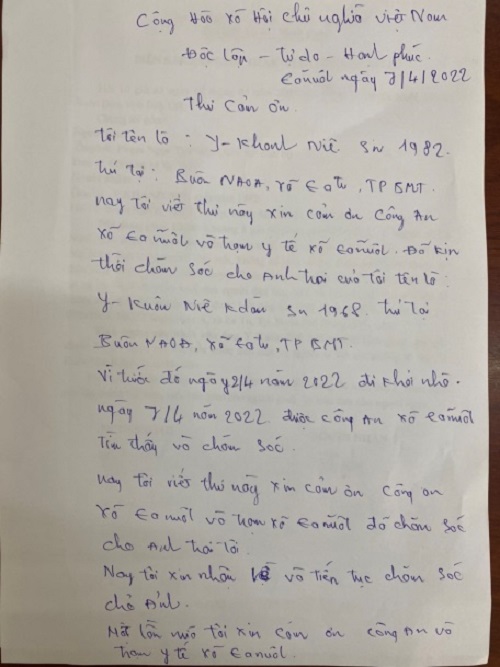 Cộng Hòa Xã Hội chủ nghĩa Việt Nam
Độc lập - Tự do - Hạnh phúc.
Eanuôl ngày 7/4/2022
Thư Cảm ơn.
Tôi tên là : Y-Khanh Niê sn 1982.
Trú tại : Buôn NAOA, xã Ea tu, TP BMT.
nay tôi viết thư này xin cảm ơn Công An
xã Ea nuôl và trạm y tế xã Eanuôl. Đã kịp
thời chăm sóc cho Anh trai của tôi tên là :
Y- Kuân Niê Kdăm sn 1968. Trú tại
Buôn NAOA, xã Ea tu, TP BMT.
Vì trước đó ngày 2/4 năm 2022 đi khỏi nhà.
ngày 7/4 năm 2022 được Công An xã Eanuôl
Tìm thấy và chăm sóc.
nay tôi viết thư này xin cảm ơn Công an
xã Ea nuôl và trạm xã Eanuôl đã chăm sóc
cho Anh trai tôi.
Nay tôi xin nhận về và tiếp tục chăm sóc
cho Anh.
Một lần nữa tôi xin cảm ơn công An và
trạm y tế xã Eanuôl.